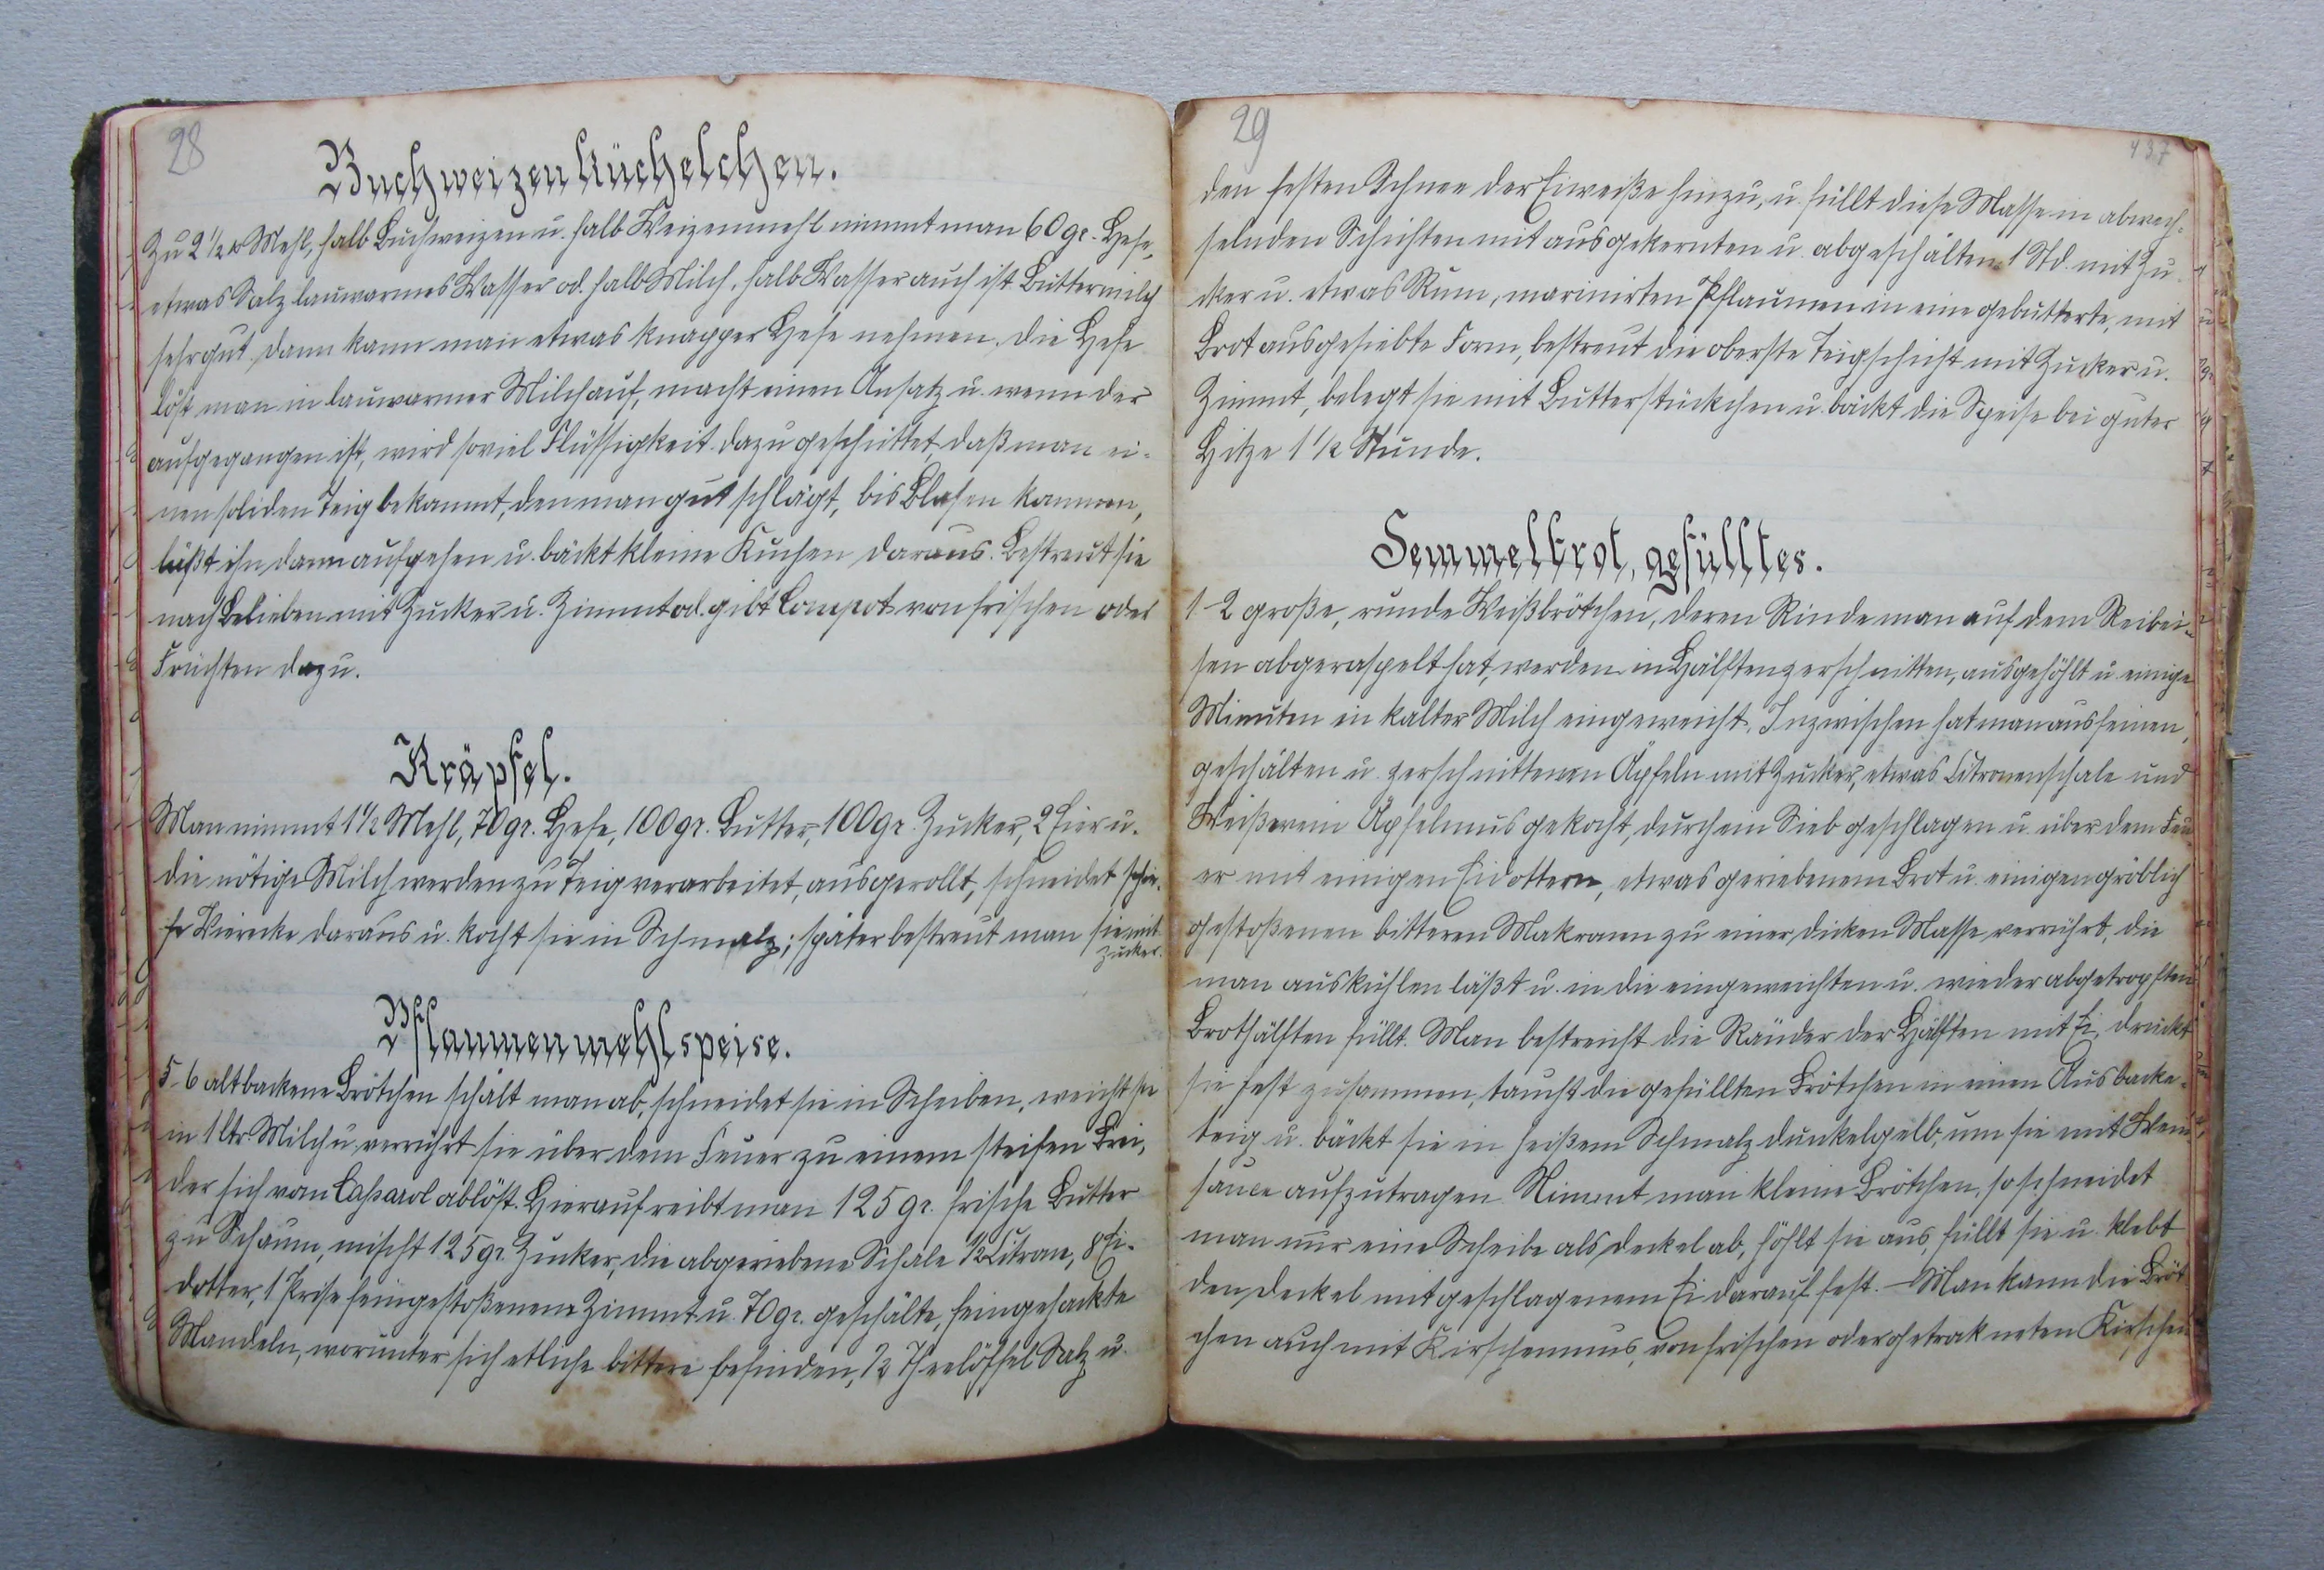 28
Buchweizenküchelchen.
Zu 2 1/2 ℔ Mehl, halb Buchweizen u. halb Weizenmehl nimmt man 60 gr. Hefe,
etwas Salz lauwarmes Wasser od. halb Milch, halb Wasser auch ist Buttermilch
sehr gut dann kann man etwas knapper Hefe nehmen. Die Hefe
löst man in lauwarmer Milch auf, macht einen Ansatz u. wenn der
aufgegangen ist, wird soviel Flüssigkeit dazu geschüttet, daß man ei-
nen soliden Teig bekommt, den man gut schlägt, bis Blasen kommen,
läßt ihn dann aufgehen u. bäckt kleine Kuchen daraus. Bestreut sie
nach Belieben mit Zucker u. Zimmt od. gibt Compot von frischen oder
Früchten dazu.
Kräpfel.
Man nimmt 1 1/2 Mehl, 70 gr. Hefe, 100 gr. Butter, 100 gr. Zucker, 2 Eier u.
die nötige Milch werden zu Teig verarbeitet, ausgerollt, schneidet schie-
fe Vierecke daraus u. kocht sie in Schmalz; später bestreut man sie mit
Zucker.
Pflaumenmehlspeise.
5-6 altbackene Brötchen schält man ab, schneidet sie in Scheiben, weicht sie
in 1 ltr. Milch u. verrührt sie über dem Feuer zu einem steifen Brei,
der sich vom Casserol ablöst. Hierauf reibt man 125 gr. frische Butter
zu Schaum, mischt 125 gr. Zucker, die abgeriebene Schale 1/2 Citrone, 8 Ei-
dotter, 1 Prise feingestoßenen Zimmt u. 70 gr. geschälte, feingehackte
Mandeln, worunter sich etliche bittere befinden, 1/2 Theelöffel Salz u.
29
437
den festen Schnee der Eiweiße hinzu, u. füllt diese Masse in abwech-
selnden Schichten mit ausgekernten u. abgeschälten 1 Std. mit Zu-
cker u. etwas Rum, marinirten Pflaumen in eine gebutterte, mit
Brot ausgesiebte Form, bestreut die oberste Teigschicht mit Zucker u.
Zimmt, belegt sie mit Butterstückchen u. bäckt die Speise bei guter
Hitze 1 1/2 Stunde.
Semmelbrot, gefülltes.
1-2 große, runde Weißbrötchen, deren Rinde man auf dem Reibei-
sen abgeraspelt hat, werden in Hälften zerschnitten, ausgehöhlt u. einige
Minuten in kalter Milch eingeweicht. Inzwischen hat man aus feinen,
geschälten u. zerschnittenen Äpfeln mit Zucker, etwas Citronenschale und
Weißwein Äpfelmus gekocht, durch ein Sieb geschlagen u. über dem Feu
er mit einigen Eidottern, etwas geriebenem Brot u. einigen gröblich
gestoßenen bitteren Makronen zu einer dicken Masse verrührt, die
man auskühlen läßt u. in die eingeweichten u. wieder abgetropften
Brothälften füllt. Man bestreicht die Ränder der Hälften mit Ei, drückt
sie fest zusammen, taucht die gefüllten Brötchen in einen Ausbacke-
teig u. bäckt sie in heißem Schmalz dunkelgelb, um sie mit Wein
sauce aufzutragen Nimmt man kleine Brötchen, so schneidet
man nur eine Scheibe als Deckel ab, höhlt sie aus, füllt sie u. klebt
den Deckel mit geschlagenem Ei darauf fest. – Man kann die Bröt
chen auch mit Kirschenmus, von frischen oder getrokneten Kirschen